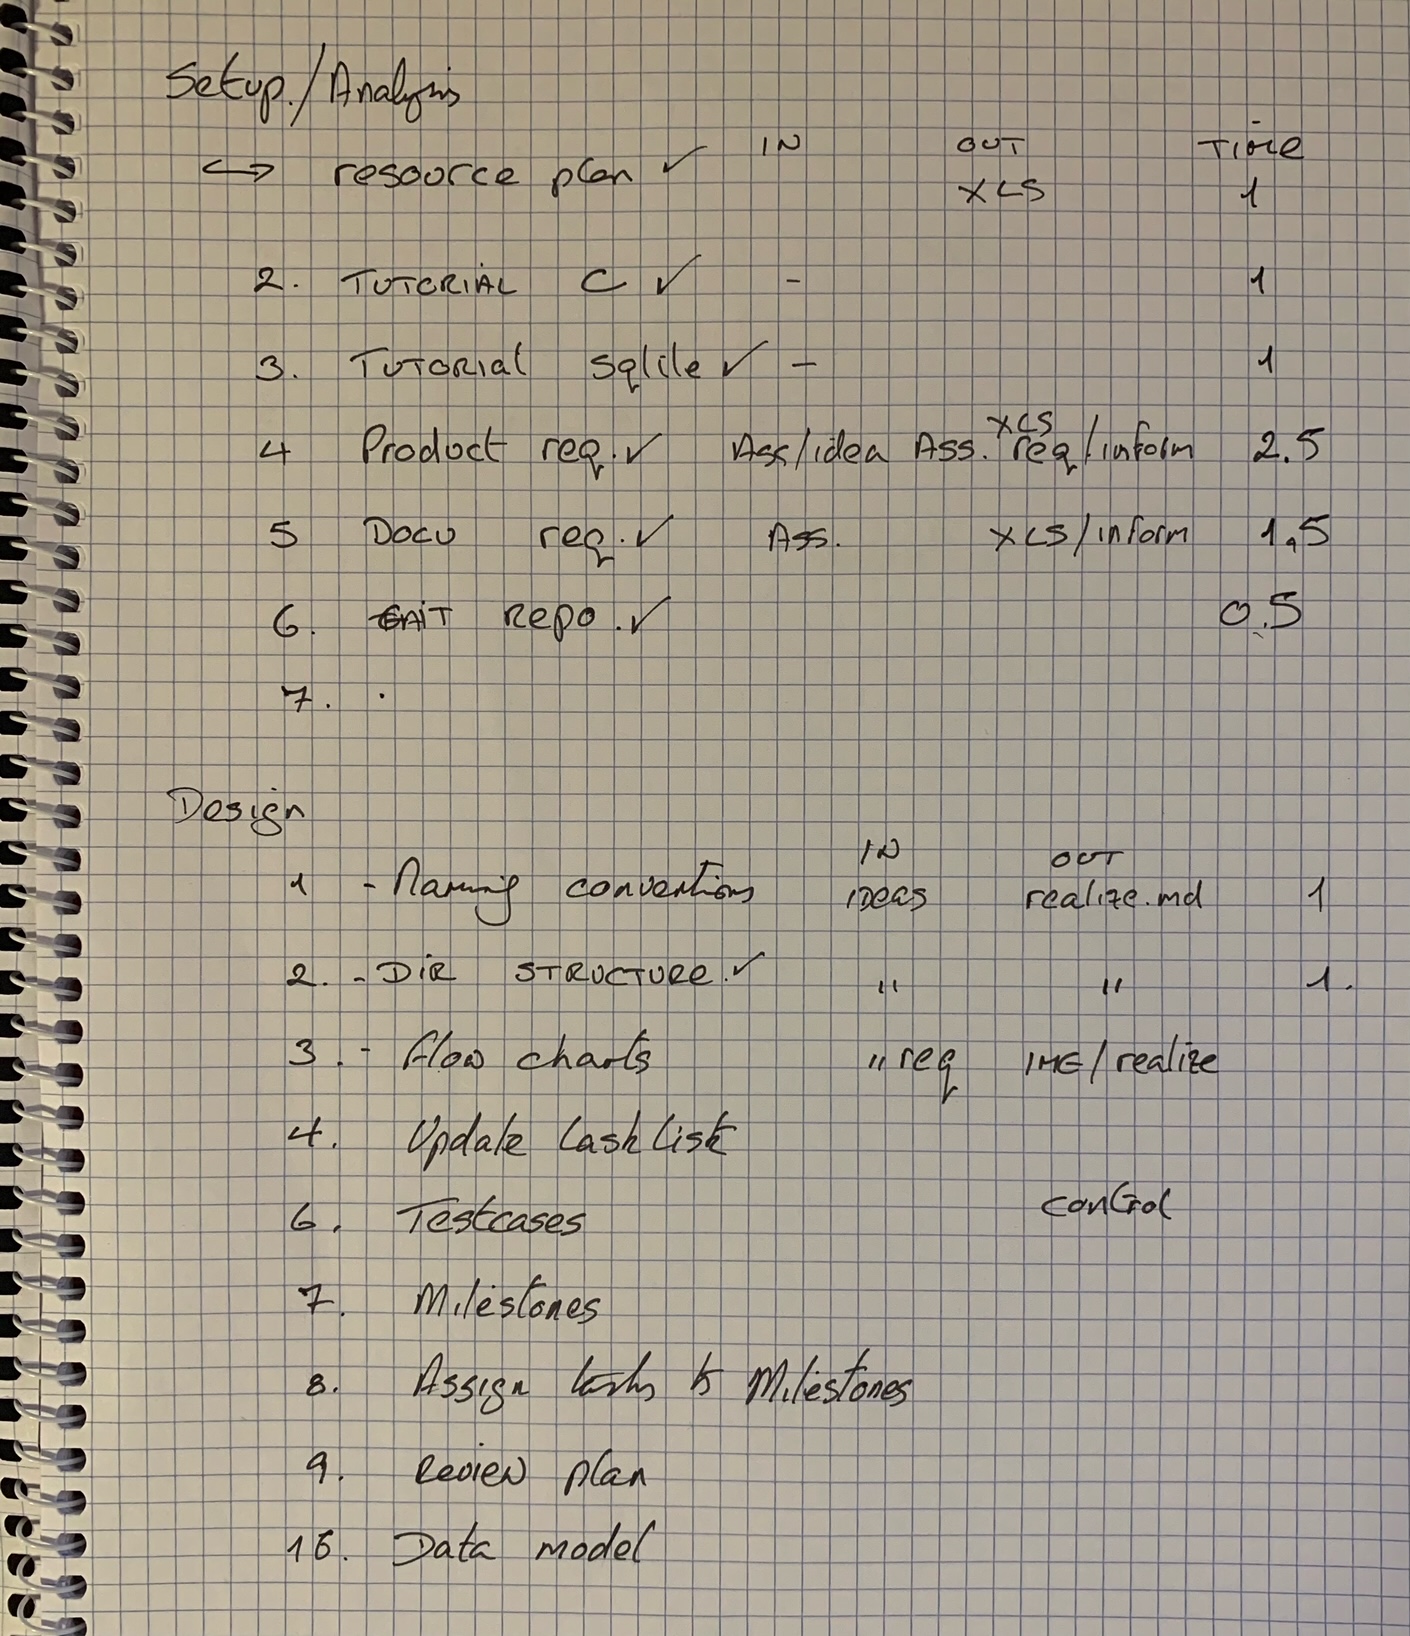 Setup./Analysis
IN OUT Time
↔ resource plan ✓ XLS 1
2. TUTORIAL C ✓ - 1
3. TUTORIAL sqlite ✓ - 1
XLS
4 Product req. ✓ Ass/idea Ass. req/inform 2.5
5 Docu req. ✓ Ass. XLS/inform 1,5
6. GIT Repo. ✓ 0.5
7. .
Design
IN OUT
1 - Naming conventions IDEAS realize.md 1
2. - DIR STRUCTURE. ✓ " " 1.
3. - flow charts " req IMG/realize
4. Update tasklist
6. Testcases control
7. Milestones
8. Assign tasks to Milestones
9. Review plan
10. Data model